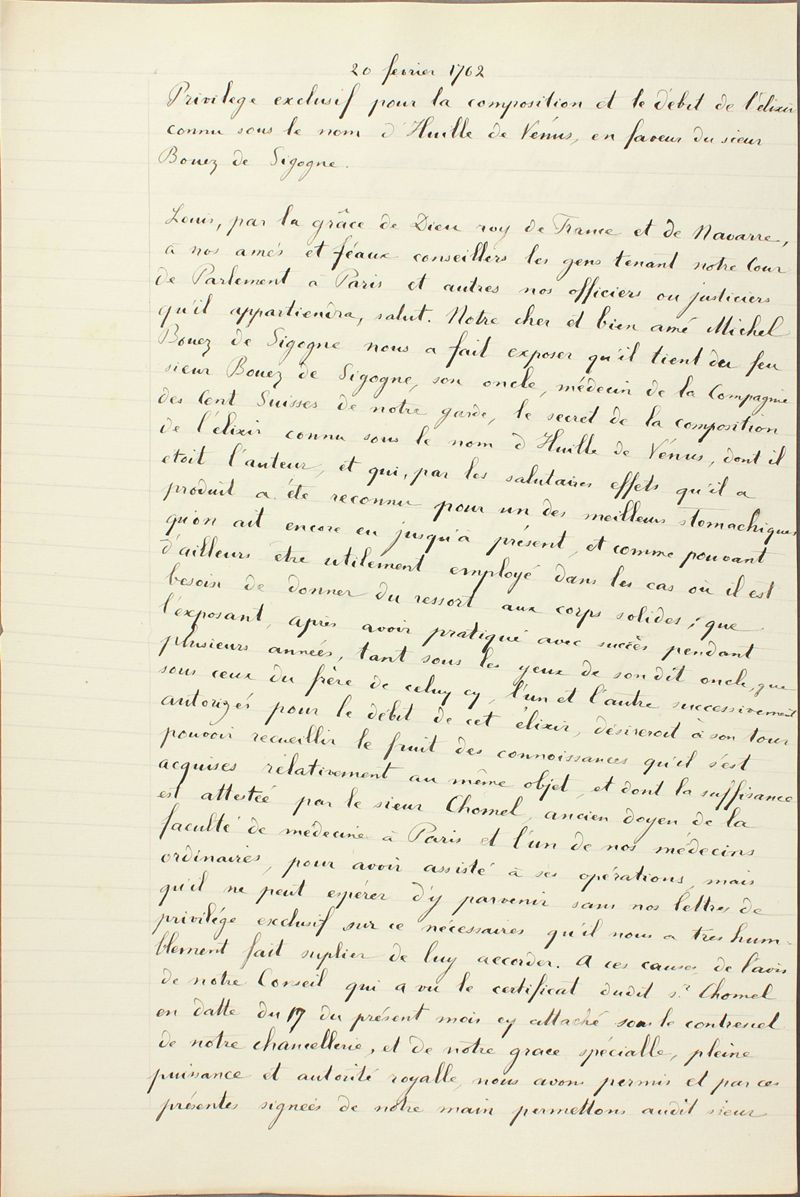 20 fevrier 1762
Privilege exclusif pour la composition et le débit de l'élixir
connu sous le nom d'Huille de Vénus, en faveur du sieur
Bouez de Sigogne.
Louis, par la grâce de Dieu roy de France et de Navarre,
a nos amés et féaux conseillers les gens tenant notre Cour
de Parlement a Paris et autres nos officiers ou justiciers
qu'il appartiendra, salut. Notre cher et bien amé Michel
Bouez de Sigogne nous a fait exposer qu'il tient du feu
sieur Bouez de Sigogne, son oncle, médecin de la Compagnie
des Cent Suisses de notre garde, le secret de la composition
de l'élixir connu sous le nom d'Huille de Vénus, dont il
etoit l'auteur, et qui, par les salutaires effets qu'il a
produit a été reconnu pour un des meilleurs stomachiques
qu'on ait encore eu jusqu'à présent, et comme pouvant
d'ailleurs être utilement employé dans les cas où il est
besoin de donner du ressort aux corps solides; que
l'exposant, après avoir pratiqué avec succès pendant
plusieurs années, tant sous les yeux de son dit oncle, que
sous ceux du frère de celuy cy, l'un et l'autre successivement
autorizés pour le débit de cet élixir, désireroit à son tour
pouvoir recueillir le fruit des connoissances qu'il s'est
acquises rélativement au même objet, et dont la suffisance
est attestée par le sieur Chomel, ancien doyen de la
faculté de médecine à Paris et l'un de nos médecins
ordinaires, pour avoir assisté à ses opérations, mais
qu'il ne peut espérer d'y parvenir sans nos lettres de
privilége exclusif sur ce nécessaires qu'il nous a tres hum-
blement fait suplier de luy accorder. A ces causes, de l'avis
de notre Conseil qui a vu le certificat dudit sr. Chomel
en datte du 17 du présent mois cy attaché sous le contrescel
de notre chancellerie, et de notre grace spécialle, pleine
puissance et autorité royalle, nous avons permis et par ces
présentes signées de notre main permettons audit sieur